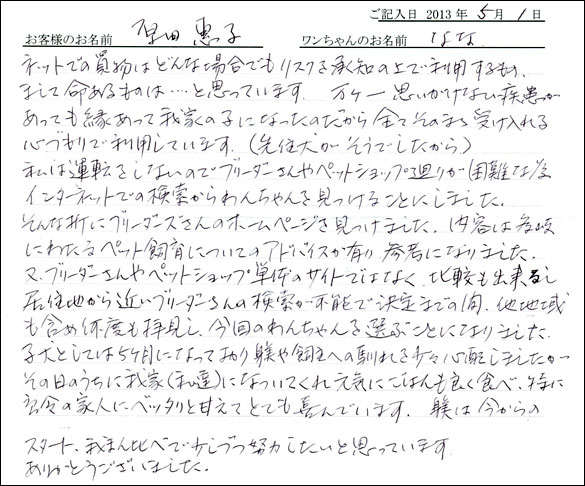 ご記入日 2013 年 5月 1日
お客様のお名前 早田 惠子 ワンちゃんのお名前 はな
ネットでの買物はどんな場合でもリスクを承知の上で利用するもの、
まして命あるものは…と思っています。 万が一思いがけない疾患が
あっても縁あって我家の子になったのだから全てそのまま受け入れる
心づもりで利用しています。(先住犬がそうでしたから)
私は運転をしないのでブリーダーさんやペットショップ廻りが困難な為
インターネットでの検索からわんちゃんを見つけることにしました。
そんな折にブリーダーズさんのホームページを見つけました。内容は多岐
にわたるペット飼育についてのアドバイスが有り参考になりました。
又、ブリーダーさんやペットショップ単体のサイトではなく、比較も出来るし
居住地から近いブリーダーさんの検索が可能で決定までの間、他地域
も含め何度も拝見し、今回のわんちゃんを選ぶことになりました。
子犬としては5ヶ月になっており躾や飼主への馴れを少々心配しましたが
その日のうちに我家(私達)になついてくれ元気にごはんも良く食べ、特に
高令の家人にベッタリと甘えてとても喜んでいます。 躾は今からの
スタート、我まん比べで少しづつ努力したいと思っています。
ありがとうございました。